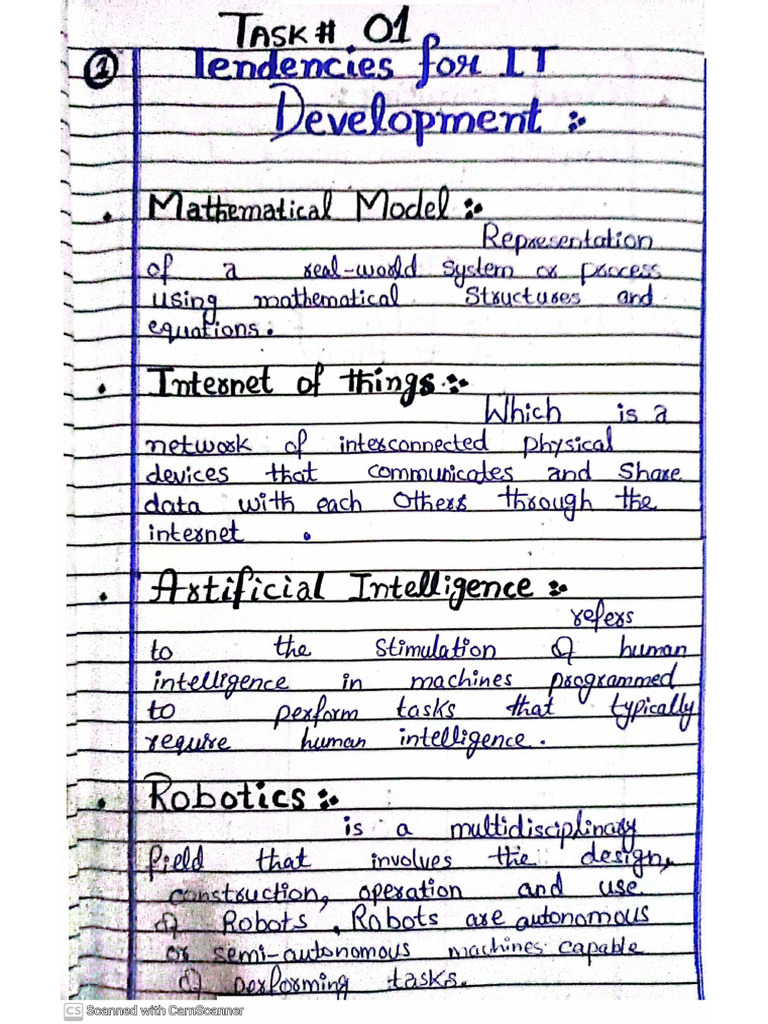 TASK# 01
① Tendencies for IT
Development :-
• Mathematical Model :-
Representation
of a real-world system or process
using mathematical Structures and
equations.
• Internet of things :-
Which is a
network of interconnected physical
devices that communicates and Share
data with each Others through the
internet .
• Artificial Intelligence :-
refers
to the Stimulation of human
intelligence in machines programmed
to perform tasks that typically
require human intelligence.
• Robotics :-
is a multidisciplinary
field that involves the design,
construction, operation and use
of Robots. Robots are autonomous
or semi-autonomous machines capable
of performing tasks.
CS Scanned with CamScanner